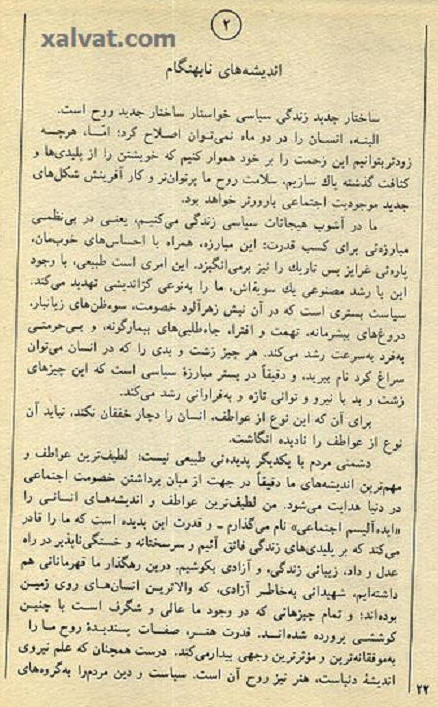 ۲
xalvat.com
اندیشه‌های نابهنگام
ساختار جدید زندگی سیاسی خواستار ساختار جدید روح است.
البته، انسان را در دو ماه نمی‌توان اصلاح کرد؛ امّا، هرچه
زودتر بتوانیم این زحمت را بر خود هموار کنیم که خویشتن را از پلیدی‌ها و
کثافت گذشته پاك سازیم، سلامت روح ما پرتوان‌تر و کار آفرینش شکل‌های
جدید موجودیت اجتماعی بارورتر خواهد بود.
ما در آشوب هیجانات سیاسی زندگی می‌کنیم، یعنی در بی‌نظمی
مبارزه‌ئی برای کسب قدرت: این مبارزه، همراه با احساس‌های خوب‌مان،
پاره‌ئی غرایز بس تاریك را نیز برمی‌انگیزد. این امری است طبیعی، با وجود
این با رشد مصنوعی یك سویه‌اش، ما را به‌نوعی کژاندیشی تهدید می‌کند.
سیاست بستری است که در آن نیش زهرآلود خصومت، سوءظن‌های زیانبار،
دروغ‌های بیشرمانه، تهمت و افتراء، جاه‌طلبی‌های بیمارگونه، و بی‌حرمتی
به‌فرد به‌سرعت رشد می‌کند. هر چیز زشت و بدی را که در انسان می‌توان
سراغ کرد نام ببرید، و دقیقاً در بستر مبارزهٔ سیاسی است که این چیزهای
زشت و بد با نیرو و توانی تازه و به‌فراوانی رشد می‌کند.
برای آن که این نوع از عواطف، انسان را دچار خفقان نکند، نباید آن
نوع از عواطف را نادیده انگاشت.
دشمنی مردم با یکدیگر پدیده‌ئی طبیعی نیست؛ لطیف‌ترین عواطف و
مهم‌ترین اندیشه‌های ما دقیقاً در جهت از میان برداشتن خصومت اجتماعی
در دنیا هدایت می‌شود. من لطیف‌ترین عواطف و اندیشه‌های انسانی را
«ایده‌آلیسم اجتماعی» نام می‌گذارم ـ و قدرت این پدیده است که ما را قادر
می‌کند که بر پلیدی‌های زندگی فائق آئیم و سرسختانه و خستگی‌ناپذیر در راه
عدل و داد، زیبائی زندگی، و آزادی بکوشیم. درین رهگذار ما قهرمانانی هم
داشته‌ایم، شهیدانی به‌خاطر آزادی، که والاترین انسان‌های روی زمین
بوده‌اند؛ و تمام چیزهائی که در وجود ما عالی و شگرف است با چنین
کوششی پرورده شده‌اند. قدرت هنر، صفات پسندیدهٔ روح ما را
به‌موفقانه‌ترین و مؤثرترین وجهی بیدار می‌کند. درست همچنان که علم نیروی
اندیشهٔ دنیاست، هنر نیز روح آن است. سیاست و دین مردم را به‌گروه‌های
۲۲